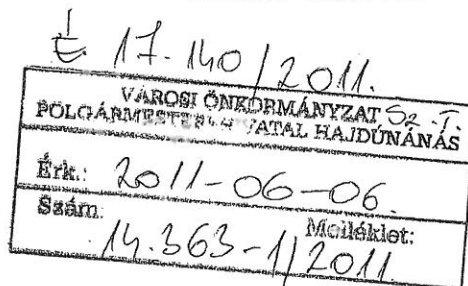 17.140/2011.
VÁROSI ÖNKORMÁNYZAT Sz.T.
POLGÁRMESTERI HIVATAL HAJDÚNÁNÁS
Érk.: 2011-06-06.
Szám: Melléklet:
14.363-1/2011.